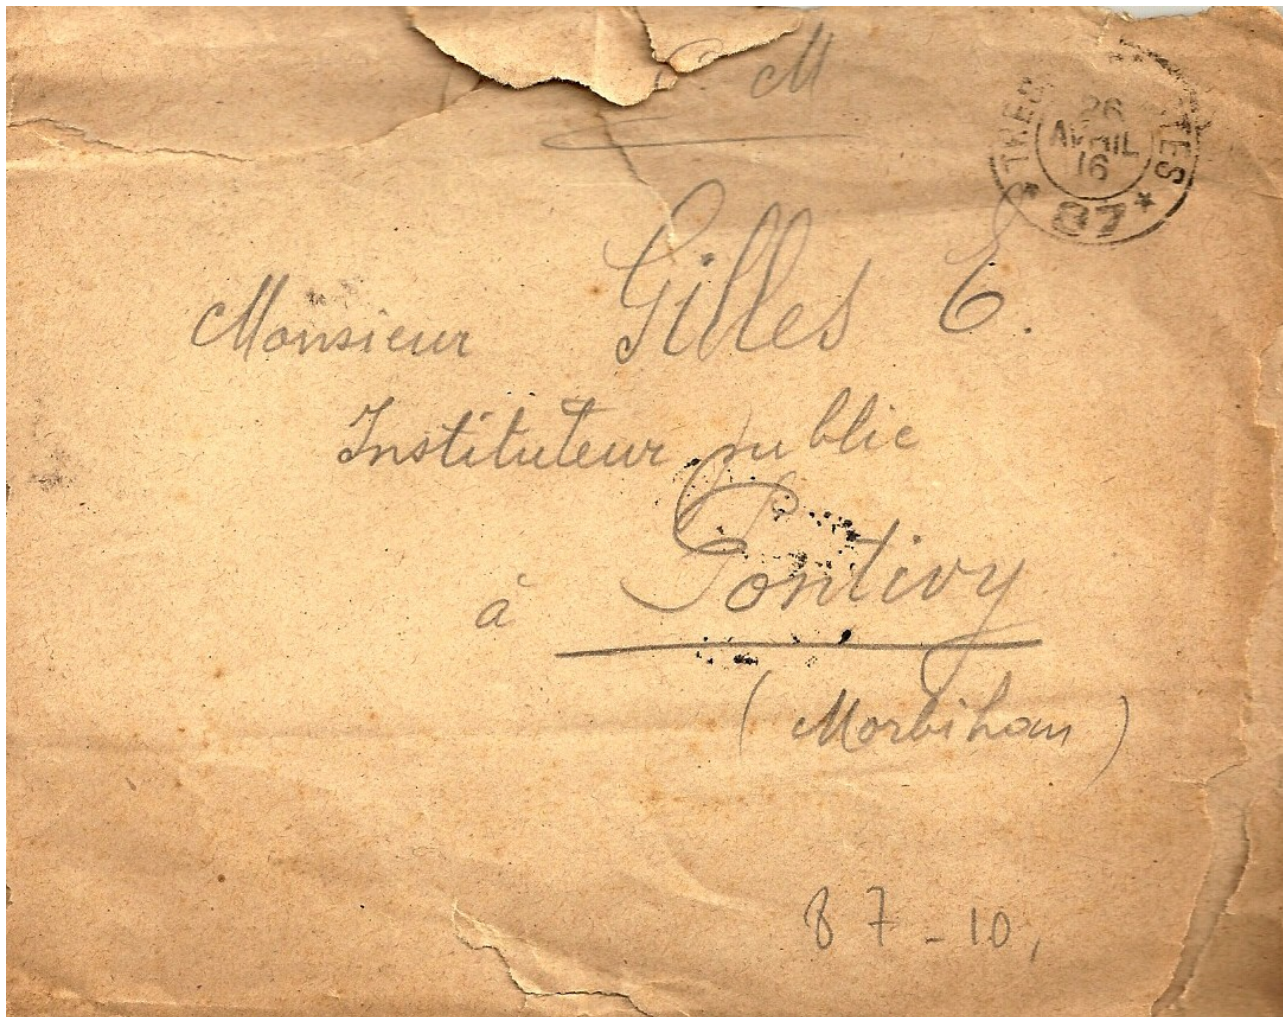 M
TRES
26
AVRIL
16
TES
* 87 *
Monsieur Gilles E.
Instituteur public
à Pontivy
(Morbihan)
87-10,